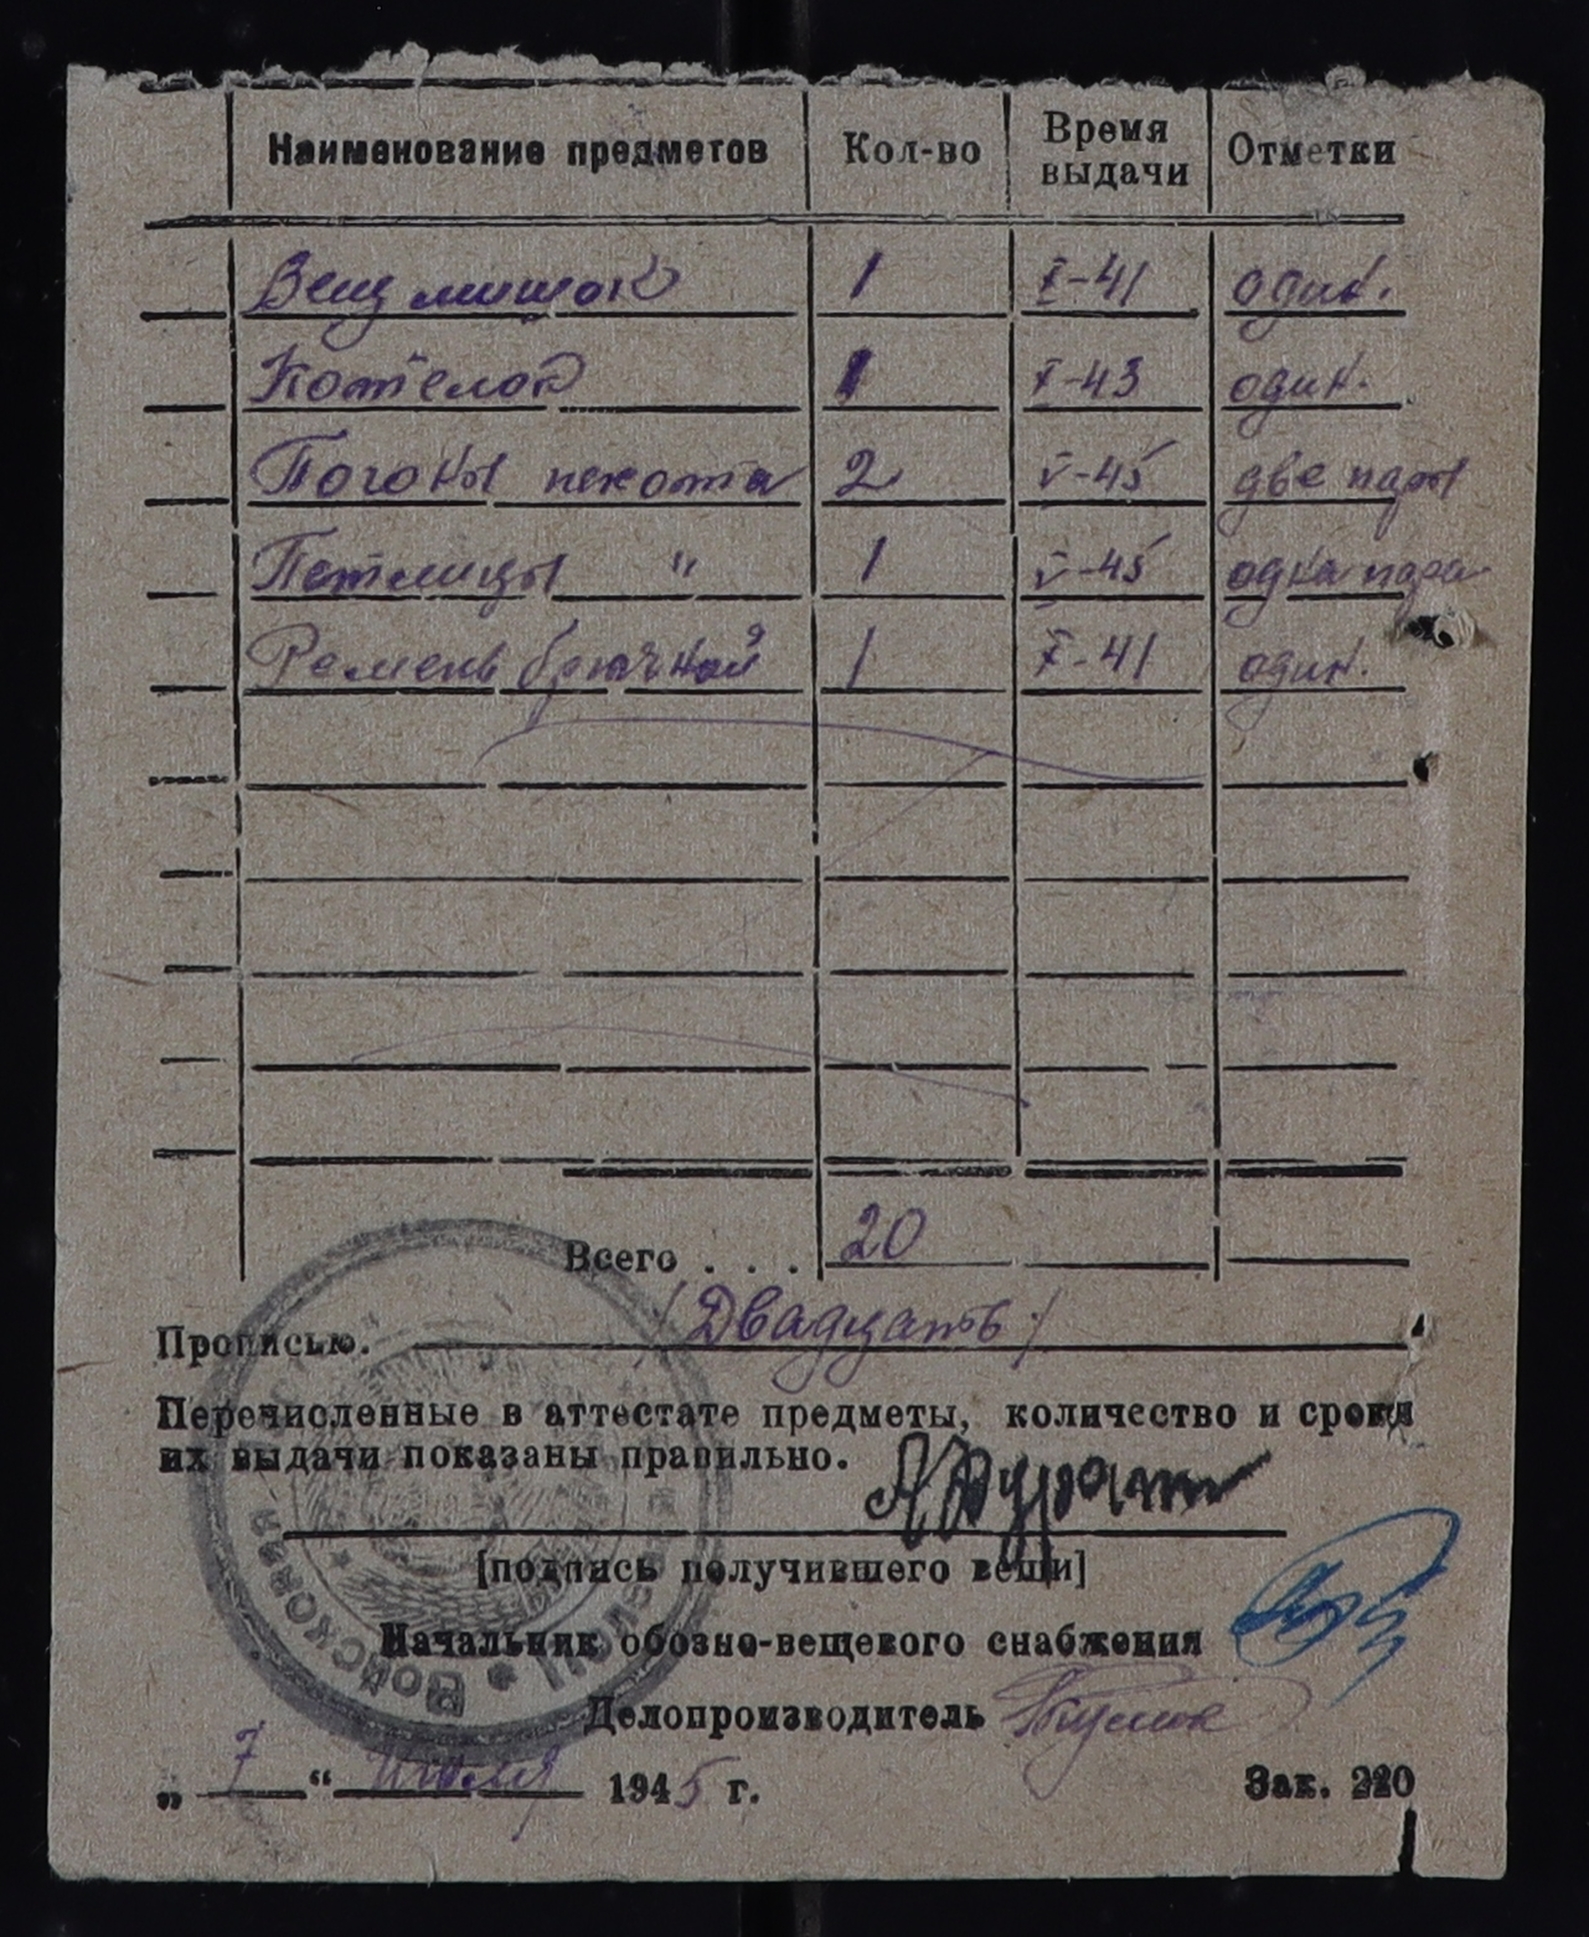 Наименование предметов Кол-во Время выдачи Отметки
Вещ мишок 1 X-41 один.
Котелок 1 X-43 один.
Погоны пехота 2 V-45 две пары
Петлицы " 1 V-45 одна пара
Ремень брючной 1 X-41 один.
Всего . . . 20
Прописью. /Двадцать/
Перечисленные в аттестате предметы, количество и сроки
их выдачи показаны правильно.
[подпись получившего вещи]
Начальник обозно-вещевого снабжения
Делопроизводитель
„ 7 “ июля 1945 г. Зак. 220
Войсковая